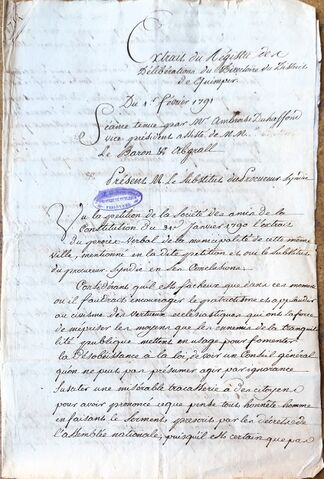 Extrait du Registre des
Délibérations du Directoire du District
de Quimper.
Du 1er fevrier 1791
Séance tenue par Mr. Ambroise Duhaffond
vice président assisté de M.M.
Le Baron & Abgrall
Présent M. Le Substitut du Procureur Syndic
Vu la petition de la Société des amis de la
Constitution du 31 janvier 1790 l'extrait
du procès Verbal de la municipalité de cette même
ville, mentionné en la dite petition et oui le substitut
du procureur Syndic en ses Conclusions.
Considérant qu'il est facheux que dans ces momens
ou il faudroit encourager le patriotisme et applaudir
au civisme des vertueux ecclesiastiques qui ont la force
de mépriser les moyens que les ennemis de la tranquil
lité publique mettent en usage pour fomenter
la Désobéissance à la loi, de voir un Conseil général
qu'on ne peut pas présumer agir par ignorance
susciter une misérable tracasserie à des citoyens
pour avoir prononcé ce que pense tout honnête homme
en faisant le serment prescrit par les décrets de
l'assemblée nationale, puisqu'il est certain que par